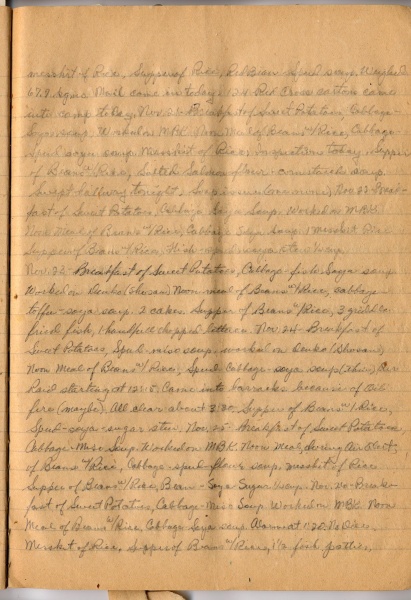 of Rice, Supper of Rice, Red Bean Spud soup. Weighed
67.9 kgms. Mail came in today. 124 Red Cross cartons came
into camp today. Nov. 21 - Breakfast of Sweet Potatoes, Cabbage-
Soya soup. Worked on MBK. Noon Meal of Beans w/Rice, Cabbage-
spud soya soup. Messkit of Rice, today. Supper
of Beans w/Rice, Salmon flour + cornstarch soup.
tonight. Nov. 22 - Break-
fast of Sweet Potatoes, Cabbage Soya Soup. Worked on MBK.
Noon Meal of Beans w/Rice, Cabbage Soya soup. 1 Messkit Rice
Supper of Beans w/Rice, soup.
Nov. 23 - Breakfast of Sweet Potatoes, Cabbage-fish Soya soup
Worked on Senko (Shosen) Noon meal of Beans w/Rice, cabbage
toffu-soya soup. 2 cakes. Supper of Beans w/Rice, 3 grilled or
fried fish, 1 handfull chopped lettuce. Nov. 24 - Breakfast of
Sweet Potatoes, Spud-miso soup. worked on Senko (Shosen)
Noon Meal of Beans w/Rice, Spud-Cabbage-soya soup (thin) Air
Raid starting at 12:15. Came into barracks because of
fire (maybe). All clear about 3:30. Supper of Beans w/Rice,
Spud-soya-sugar stew. Nov. 25 - breakfast of Sweet Potatoes
Cabbage-Miso Soup. Worked on MBK. Noon Meal, during Air Alert,
of Beans w/Rice, Cabbage-spud-flour soup, messkit of Rice
Supper of Beans w/Rice, Bean-Soya Sugar soup. Nov. 26 - Break-
fast of Sweet Potatoes, Cabbage-Miso Soup. Worked on MBK. Noon
Meal of Beans w/Rice, Cabbage-Soya soup. Alarm at 1:20.
Messkit of Rice. Supper of Beans w/Rice, 1½ fish patties,